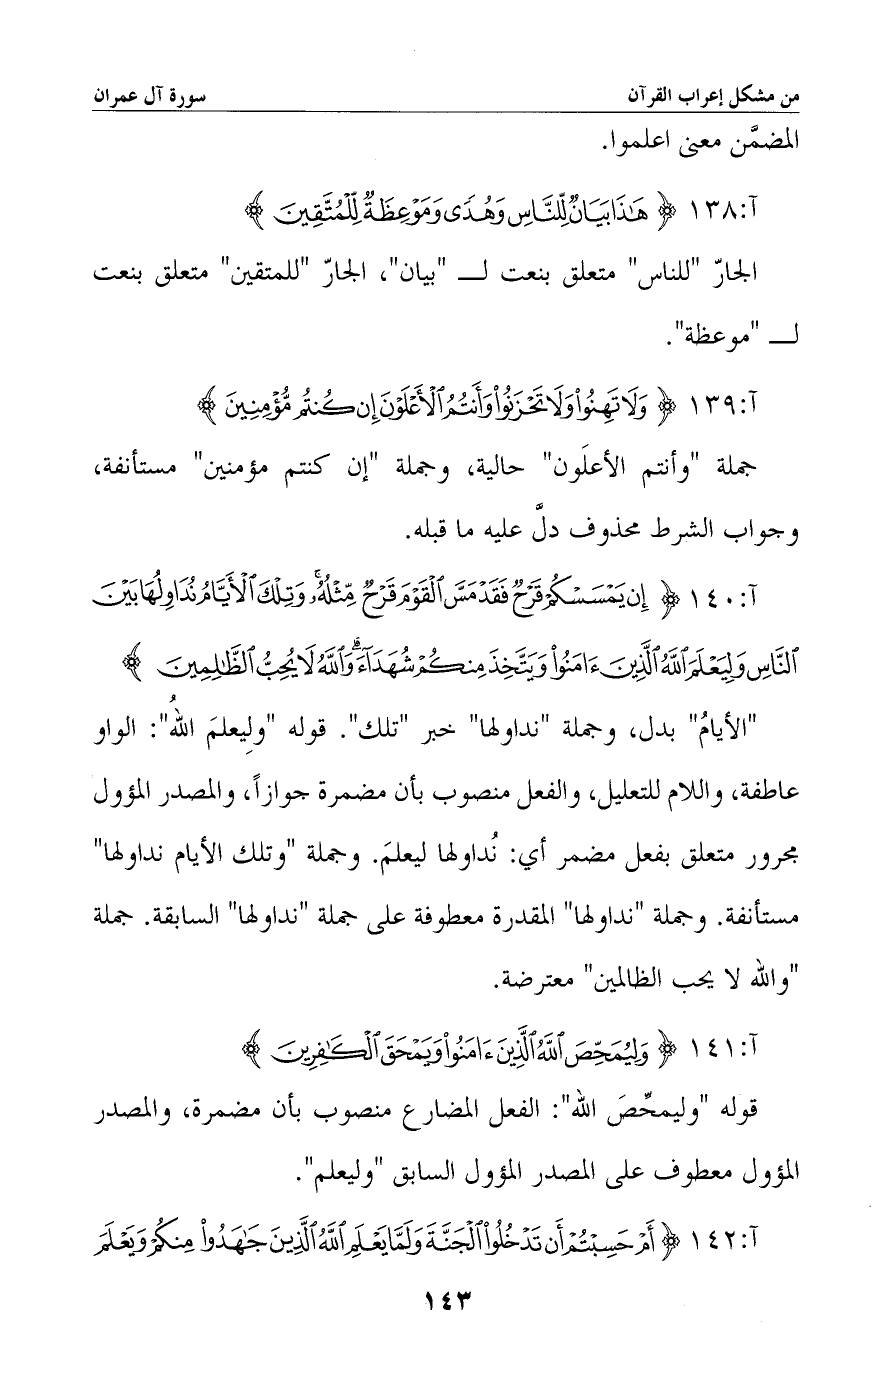 من مشكل إعراب القرآن سورة آل عمران
المضمَّن معنى اعلموا.
آ:١٣٨ ﴿ هَٰذَا بَيَانٌ لِّلنَّاسِ وَهُدًى وَمَوْعِظَةٌ لِّلْمُتَّقِينَ ﴾
الجارّ "للناس" متعلق بنعت لـ "بيان"، الجارّ "للمتقين" متعلق بنعت
لـ "موعظة".
آ:١٣٩ ﴿ وَلَا تَهِنُوا۟ وَلَا تَحْزَنُوا۟ وَأَنتُمُ ٱلْأَعْلَوْنَ إِن كُنتُم مُّؤْمِنِينَ ﴾
جملة "وأنتم الأعلَون" حالية، وجملة "إن كنتم مؤمنين" مستأنفة،
وجواب الشرط محذوف دلَّ عليه ما قبله.
آ:١٤٠ ﴿ إِن يَمْسَسْكُمْ قَرْحٌ فَقَدْ مَسَّ ٱلْقَوْمَ قَرْحٌ مِّثْلُهُۥ ۚ وَتِلْكَ ٱلْأَيَّامُ نُدَاوِلُهَا بَيْنَ
ٱلنَّاسِ وَلِيَعْلَمَ ٱللَّهُ ٱلَّذِينَ ءَامَنُوا۟ وَيَتَّخِذَ مِنكُمْ شُهَدَآءَ ۗ وَٱللَّهُ لَا يُحِبُّ ٱلظَّٰلِمِينَ ﴾
"الأيامُ" بدل، وجملة "نداولها" خبر "تلك". قوله "ولِيعلمَ اللهُ": الواو
عاطفة، واللام للتعليل، والفعل منصوب بأن مضمرة جوازاً، والمصدر المؤول
مجرور متعلق بفعل مضمر أي: نُداولها ليعلمَ. وجملة "وتلك الأيام نداولها"
مستأنفة. وجملة "نداولها" المقدرة معطوفة على جملة "نداولها" السابقة. جملة
"والله لا يحب الظالمين" معترضة.
آ:١٤١ ﴿ وَلِيُمَحِّصَ ٱللَّهُ ٱلَّذِينَ ءَامَنُوا۟ وَيَمْحَقَ ٱلْكَٰفِرِينَ ﴾
قوله "وليمحِّصَ الله": الفعل المضارع منصوب بأن مضمرة، والمصدر
المؤول معطوف على المصدر المؤول السابق "وليعلم".
آ:١٤٢ ﴿ أَمْ حَسِبْتُمْ أَن تَدْخُلُوا۟ ٱلْجَنَّةَ وَلَمَّا يَعْلَمِ ٱللَّهُ ٱلَّذِينَ جَٰهَدُوا۟ مِنكُمْ وَيَعْلَمَ
١٤٣